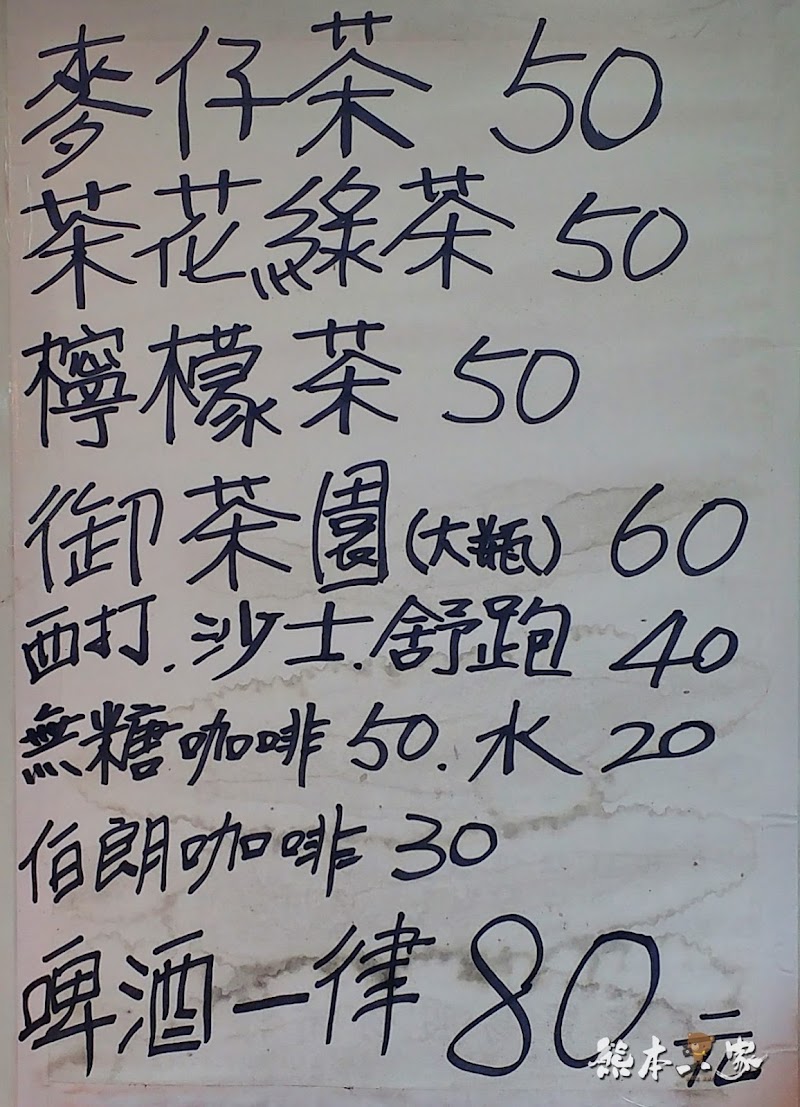 麥仔茶 50
茶花綠茶 50
檸檬茶 50
御茶園(大瓶) 60
西打.沙士.舒跑 40
無糖咖啡 50.水 20
伯朗咖啡 30
啤酒一律 80元